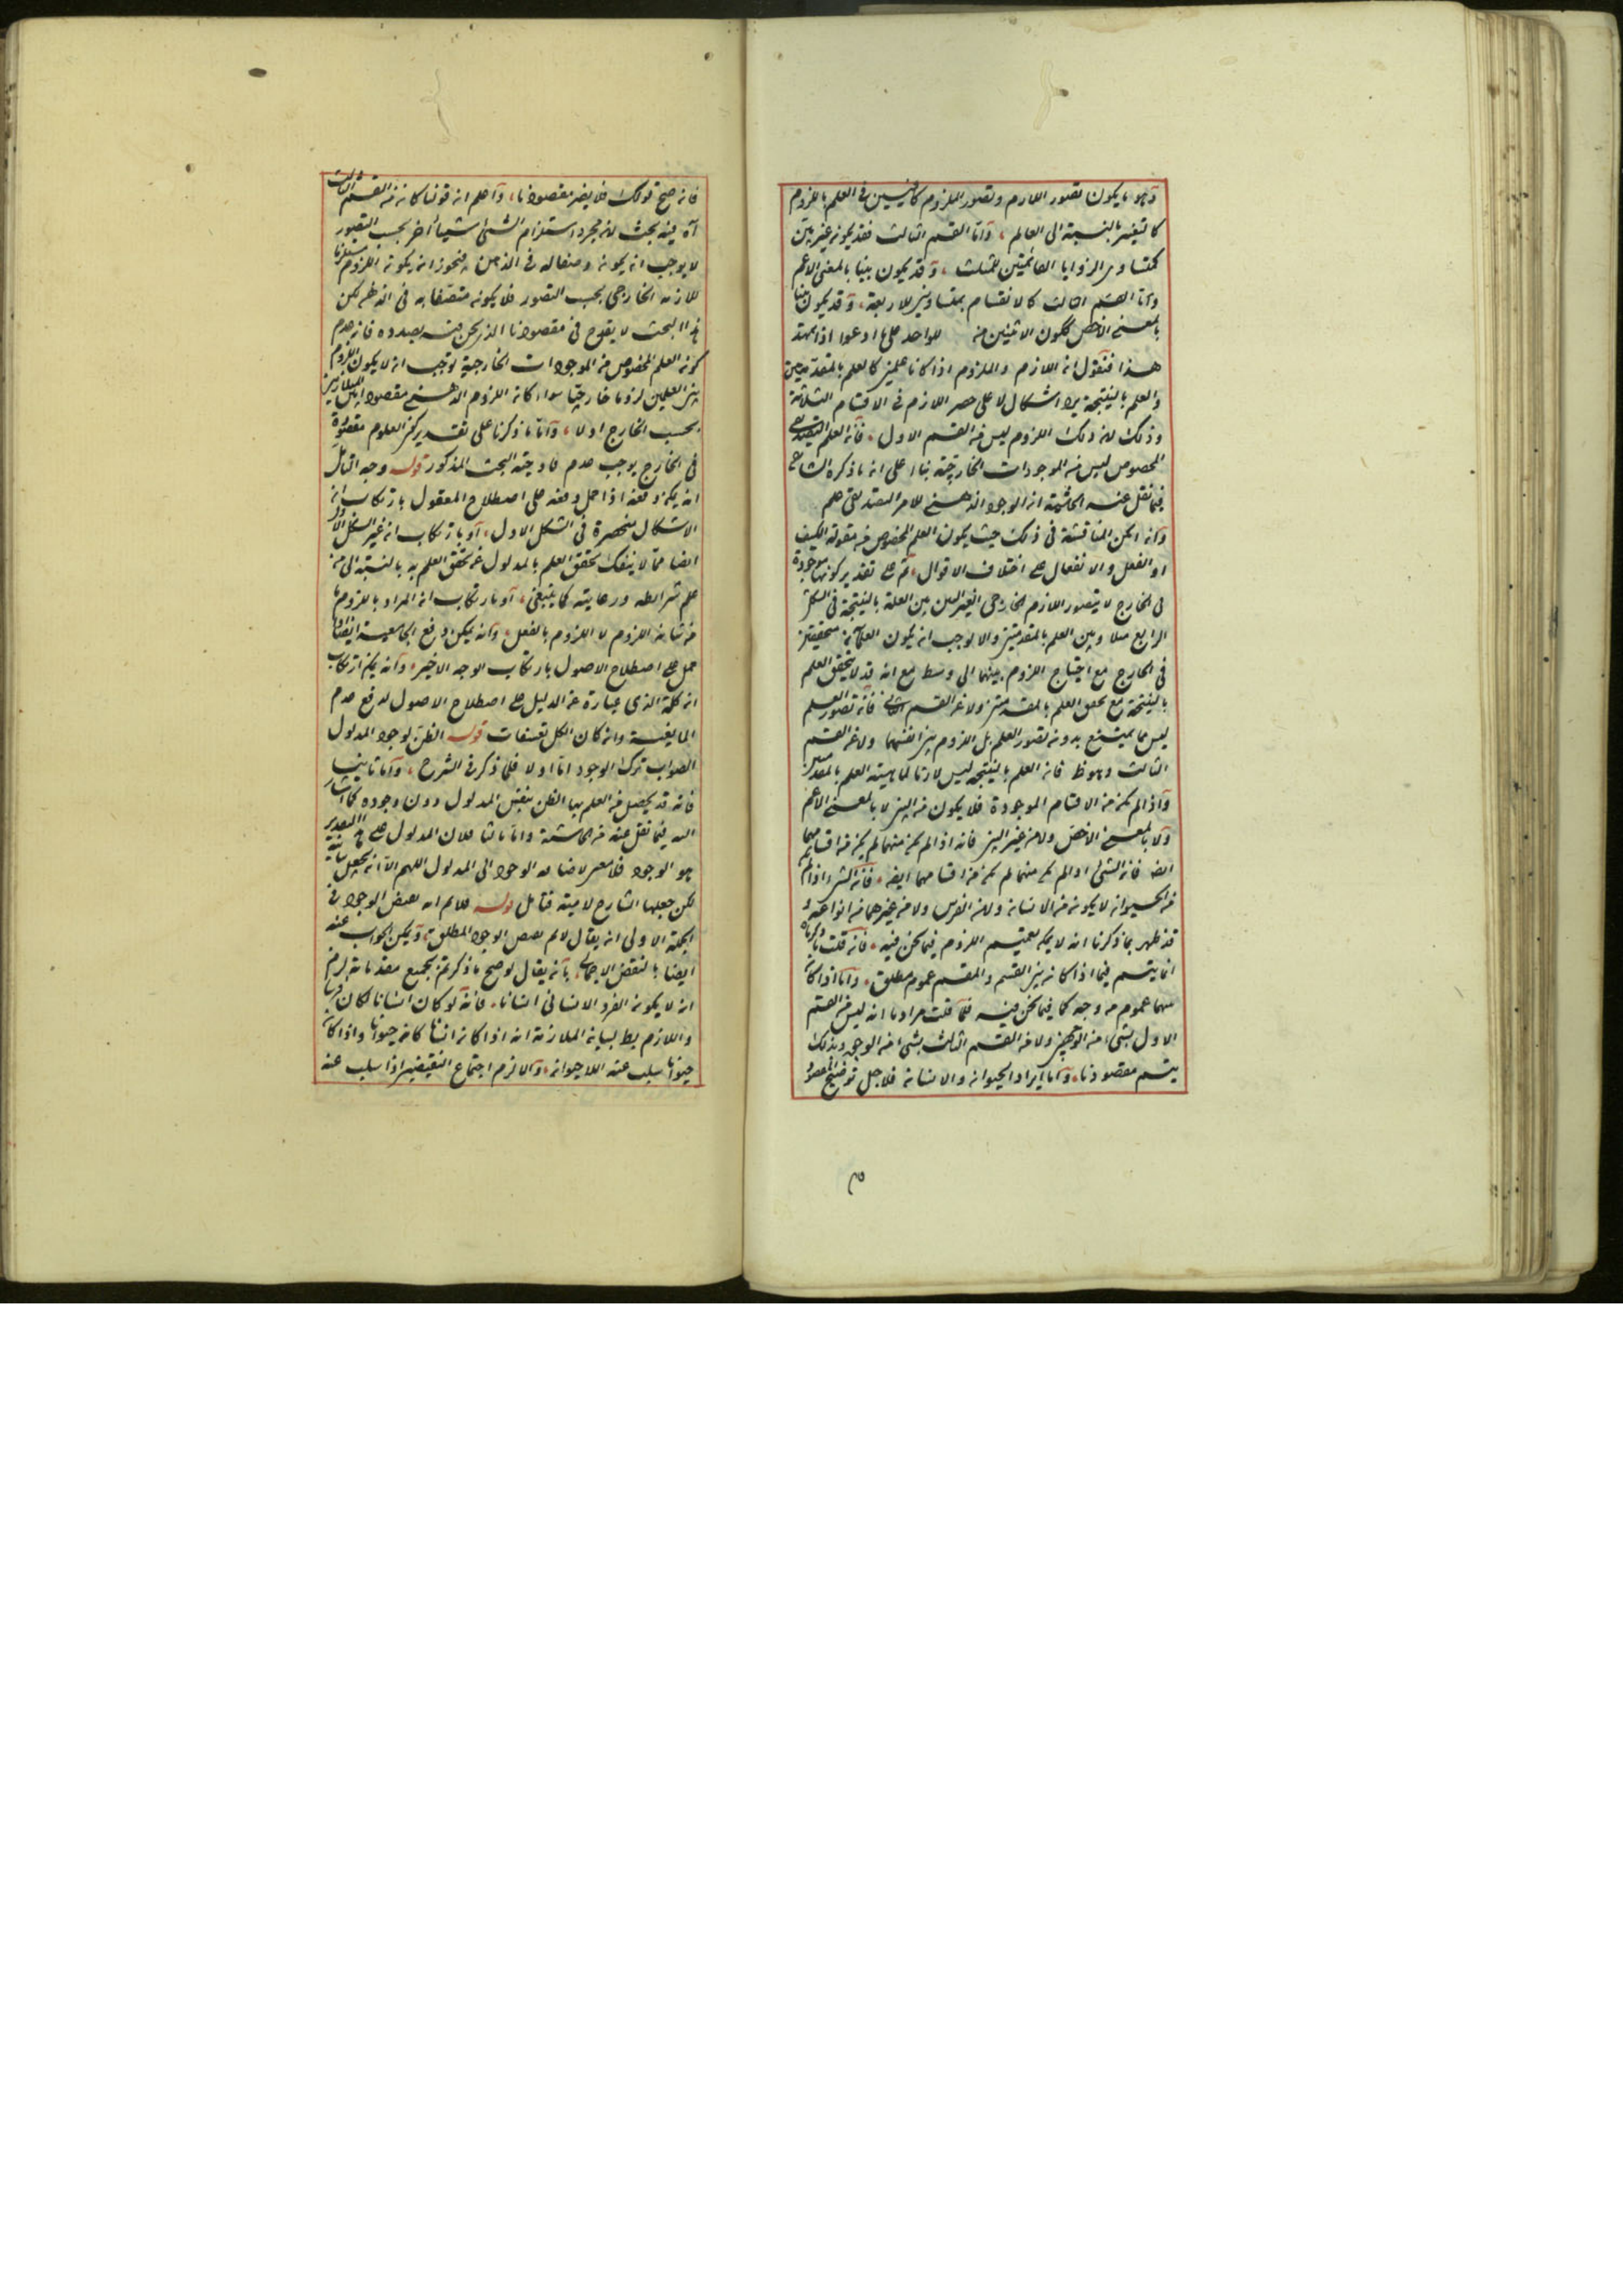 وهو ما يكون تصور اللازم وتصور الملزوم كافيين في العلم باللزوم
كالتغير بالنسبة الى العالم، واما القسم الثالث فقد يكون غير بين
كتساوي الزوايا القائمتين للمثلث، وقد يكون بينا بالمعنى الاعم
كالانقسام بمتساويين للاربعة، وقد يكون بينا
بالمعنى الاخص ككون الاثنين للواحد على ما ادعوا اذا تمهد
هذا فنقول ان اللازم والملزوم اذا كانا علمين كالعلم بالمقدمتين
والعلم بالنتيجة يرد اشكال لا على حصر اللازم في الاقسام الثلاثة
وذلك لان ذلك اللزوم ليس من القسم الاول، فان العلم التصديقي
المخصوص ليس من الموجودات الخارجية بناء على ان ما ذكره الشارح
فيما نقل عنه الحاشية ان الوجود الذهني للامر التصديقي علم
وان امكن المناقشة في ذلك حيث يكون العلم المخصوص من مقولة الكيف
او الفعل والانفعال على اختلاف الاقوال، ثم على تقدير كونها موجودة
في الخارج لا يتصور اللازم الخارجي الغير البين بين العلم بالنتيجة في الشكل
الرابع مثلا وبين العلم بالمقدمتين والا لوجب ان يكون العلمان متحققين
في الخارج مع احتياج اللزوم بينهما الى وسط مع انه قد لا يتحقق العلم
بالنتيجة مع تحقق العلم بالمقدمتين ولا من القسم الثاني فان تصور العلم
ليس مما يمتنع بدون تصور العلم بل اللزوم بين انفسهما ولا من القسم
الثالث وهو ظ فان العلم بالنتيجة ليس لازما لماهية العلم بالمقدمتين
واذا لم يكن من الاقسام الموجودة فلا يكون من البين لا بالمعنى الاعم
ولا بالمعنى الاخص ولا من غير البين فانه اذا لم يكن منهما لم يكن من اقسامهما
ايضا فان الشيء اذا لم يكن منهما لم يكن من اقسامهما ايضا، فان الشيء اذا لم
من الحيوان لا يكون من الانسان ولا من الفرس ولا من غيرهما من انواعه و
قد ظهر بما ذكرنا انه لا يمكن تعميم اللزوم فيما نحن فيه، فان قلت ما ذكرناه
انما يتم فيما اذا كان بين القسم والمقسم عموم مطلق، واما اذا كان
بينهما عموم من وجه كما فيما نحن فيه فلا قلت مرادنا انه ليس من القسم
الاول بشيء من الوجهين ولا من القسم الثالث بشيء من الوجوه وبذلك
يتم مقصودنا، واما ايراد الحيوان والانسان فلاجل توضيح المقصود
فان صح قولك فلا يضر مقصودنا، واعلم ان قولنا كان من القسم الثالث
آه فيه بحث لان مجرد استلزام الشيء شيئا آخر بحسب التصور
لا يوجب ان يكون وصفا له في الذهن، فيجوز ان يكون اللزوم مستلزما
للازم الخارجي بحسب التصور فلا يكون متصفا به في الذهن لكن
هذا البحث لا يقدح في مقصودنا الذي نحن فيه بصدده فان عدم
كون العلم المخصوص من الموجودات الخارجية يوجب ان لا يكون اللزوم
بين العلمين لزوما خارجيا سواء كان اللزوم الذهني مقصودا بين المتلازمين
بحسب الخارج اولا، واما ما ذكرنا على تقدير كون العلوم مقصودة
في الخارج يوجب عدم البحث المذكور قوله وجه التأمل
انه يمكن دفعه اذا حمل دفعه على اصطلاح المعقول بارتكاب ان
الاشكال منحصرة في الشكل الاول، او بارتكاب ان غير الشكل الاول
ايضا مما لا ينفك تحقق العلم بالمدلول عن تحقق العلم به بالنسبة الى من
علم شرائطه ورعايته كما ينبغي، او بارتكاب ان المراد باللزوم ما
من شانه اللزوم لا اللزوم بالفعل، وانه يمكن دفع الجامعية ايضا اذا
حمل على اصطلاح الاصول بارتكاب الوجه الاخير، وانه يمكن ارتكاب
ان كلمة الذي عبارة عن الدليل على اصطلاح الاصول لدفع عدم
المانعية وان كان الكل تعسفات قوله الظن لوجود المدلول
الصواب ترك الوجود اما اولا فلما ذكر في الشرح، واما ثانيا
فانه قد يحصل من العلم بها الظن بنفس المدلول دون وجوده كما اشار
اليه فيما نقل عنه من الحاشية واما ثالثا فلان المدلول على هذا التقدير
هو الوجود فلا معنى لاضافة الوجود الى المدلول اللهم الا ان يجعل بيانية
لكن جعلها الشارح لامية فتأمل قوله فلا نم انه نقيض الوجود في
الجملة الاولى ان يقال لا نم نقيض الوجود المطلق، ويمكن الجواب عنه
ايضا بالنقض الاجمالي، بان يقال لو صح ما ذكرتم بجميع مقدماته لزم
ان لا يكون الفرد الانساني انسانا، فانه لو كان انسانا لكان فرسا
واللازم بط لبيان الملازمة انه اذا كان انسانا كان حيوانا واذا كان
حيوانا سلب عنه اللاحيوان، والا لزم اجتماع النقيضين اذا سلب عنه